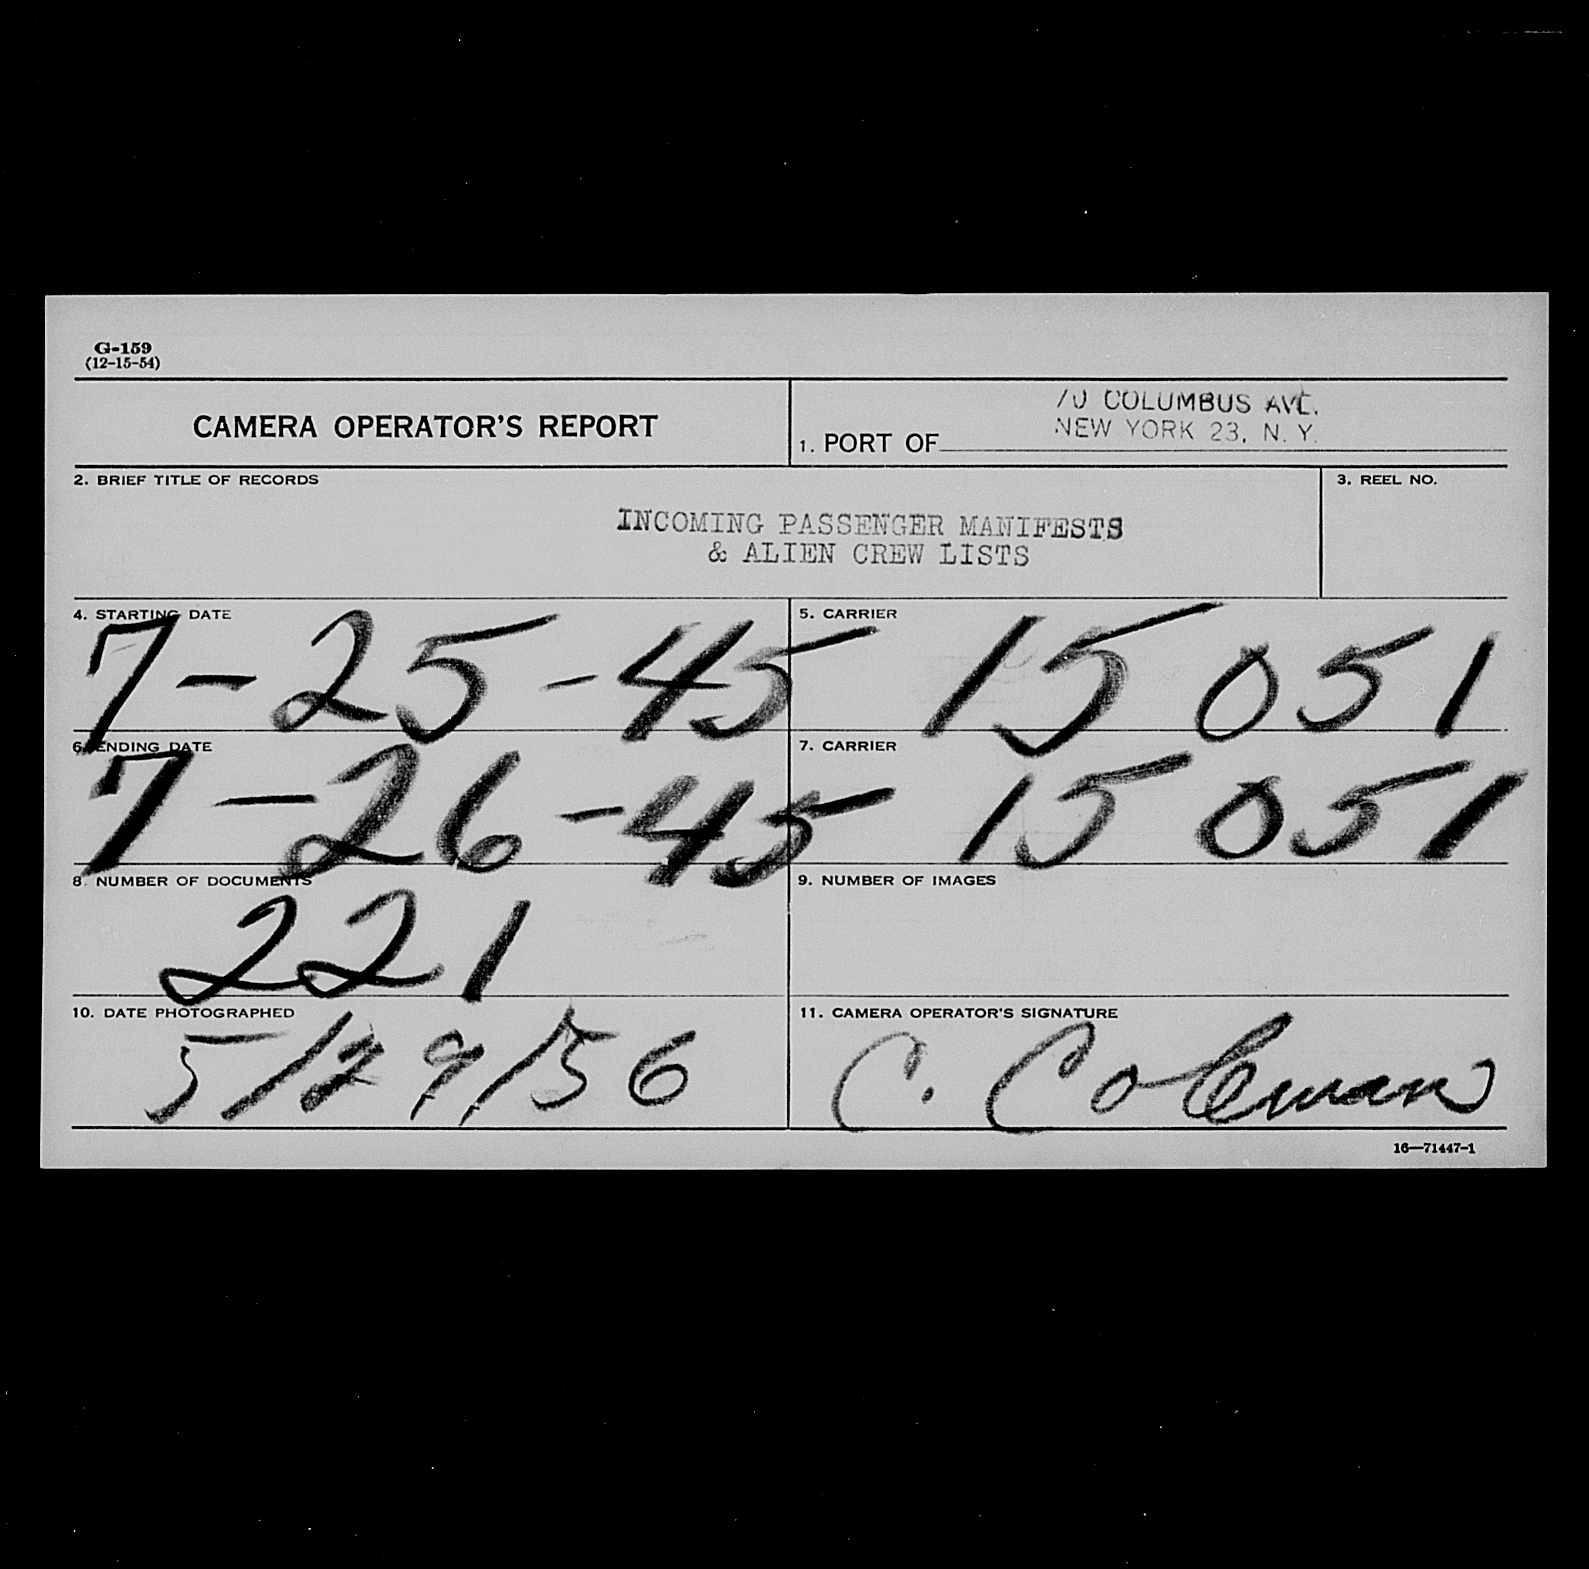 G-159
(12-15-54)
CAMERA OPERATOR'S REPORT
1. PORT OF
70 COLUMBUS AVE.
NEW YORK 23, N. Y.
2. BRIEF TITLE OF RECORDS
INCOMING PASSENGER MANIFESTS
& ALIEN CREW LISTS
3. REEL NO.
4. STARTING DATE
7-25-45
5. CARRIER
15051
6. ENDING DATE
7-26-45
7. CARRIER
15051
8. NUMBER OF DOCUMENTS
221
9. NUMBER OF IMAGES
10. DATE PHOTOGRAPHED
5/29/56
11. CAMERA OPERATOR'S SIGNATURE
C. Coleman
16—71447-1